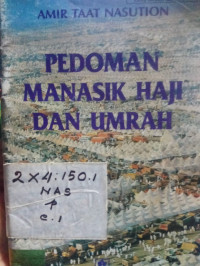 AMIR TAAT NASUTION
PEDOMAN
MANASIK HAJI
DAN UMRAH
2X4.150.1
NAS
P
c.1